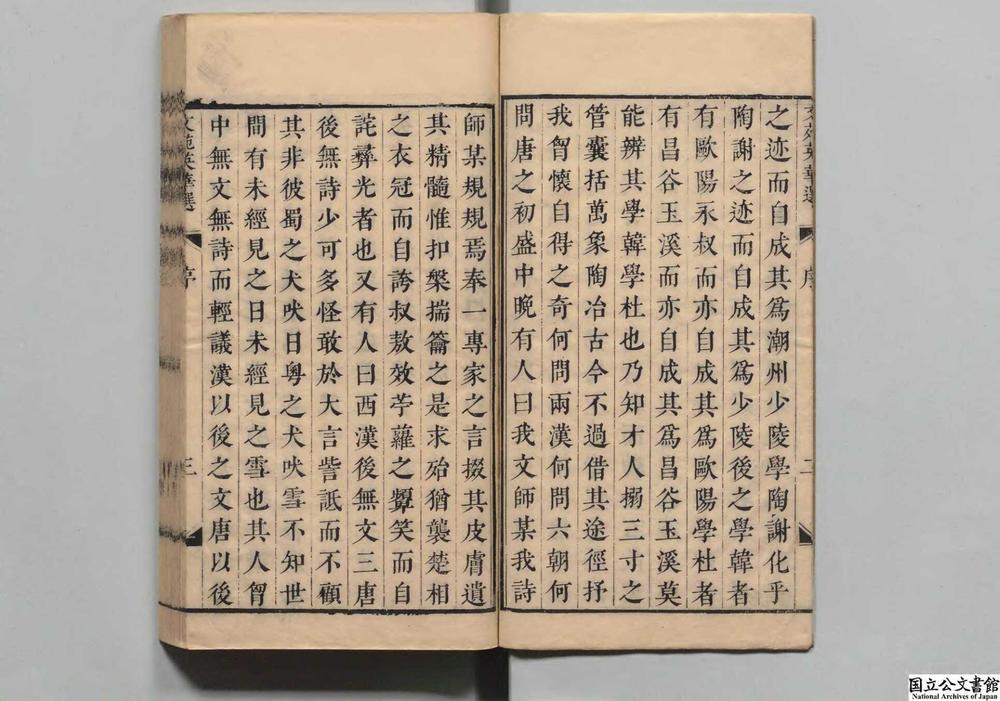 文苑英華選 序 二
之迹而自成其爲潮州少陵學陶謝化乎
陶謝之迹而自成其爲少陵後之學韓者
有歐陽永叔而亦自成其爲歐陽學杜者
有昌谷玉溪而亦自成其爲昌谷玉溪莫
能辨其學韓學杜也乃知才人搦三寸之
管囊括萬象陶冶古今不過借其途徑抒
我胷懷自得之奇何問兩漢何問六朝何
問唐之初盛中晚有人曰我文師某我詩
師某規規焉奉一專家之言掇其皮膚遺
其精髓惟扣槃揣籥之是求殆猶襲楚相
之衣冠而自誇叔敖效苧蘿之顰笑而自
詫彝光者也又有人曰西漢後無文三唐
後無詩少可多怪敢於大言訾詆而不顧
其非彼蜀之犬吠日粵之犬吠雪不知世
間有未經見之日未經見之雪也其人胷
中無文無詩而輕議漢以後之文唐以後
文苑英華選 序 三
国立公文書館
National Archives of Japan